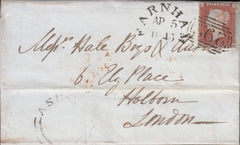 FARNHAM
AP 5
Messrs Hale Boys &
6. Ely Place
Holborn
London